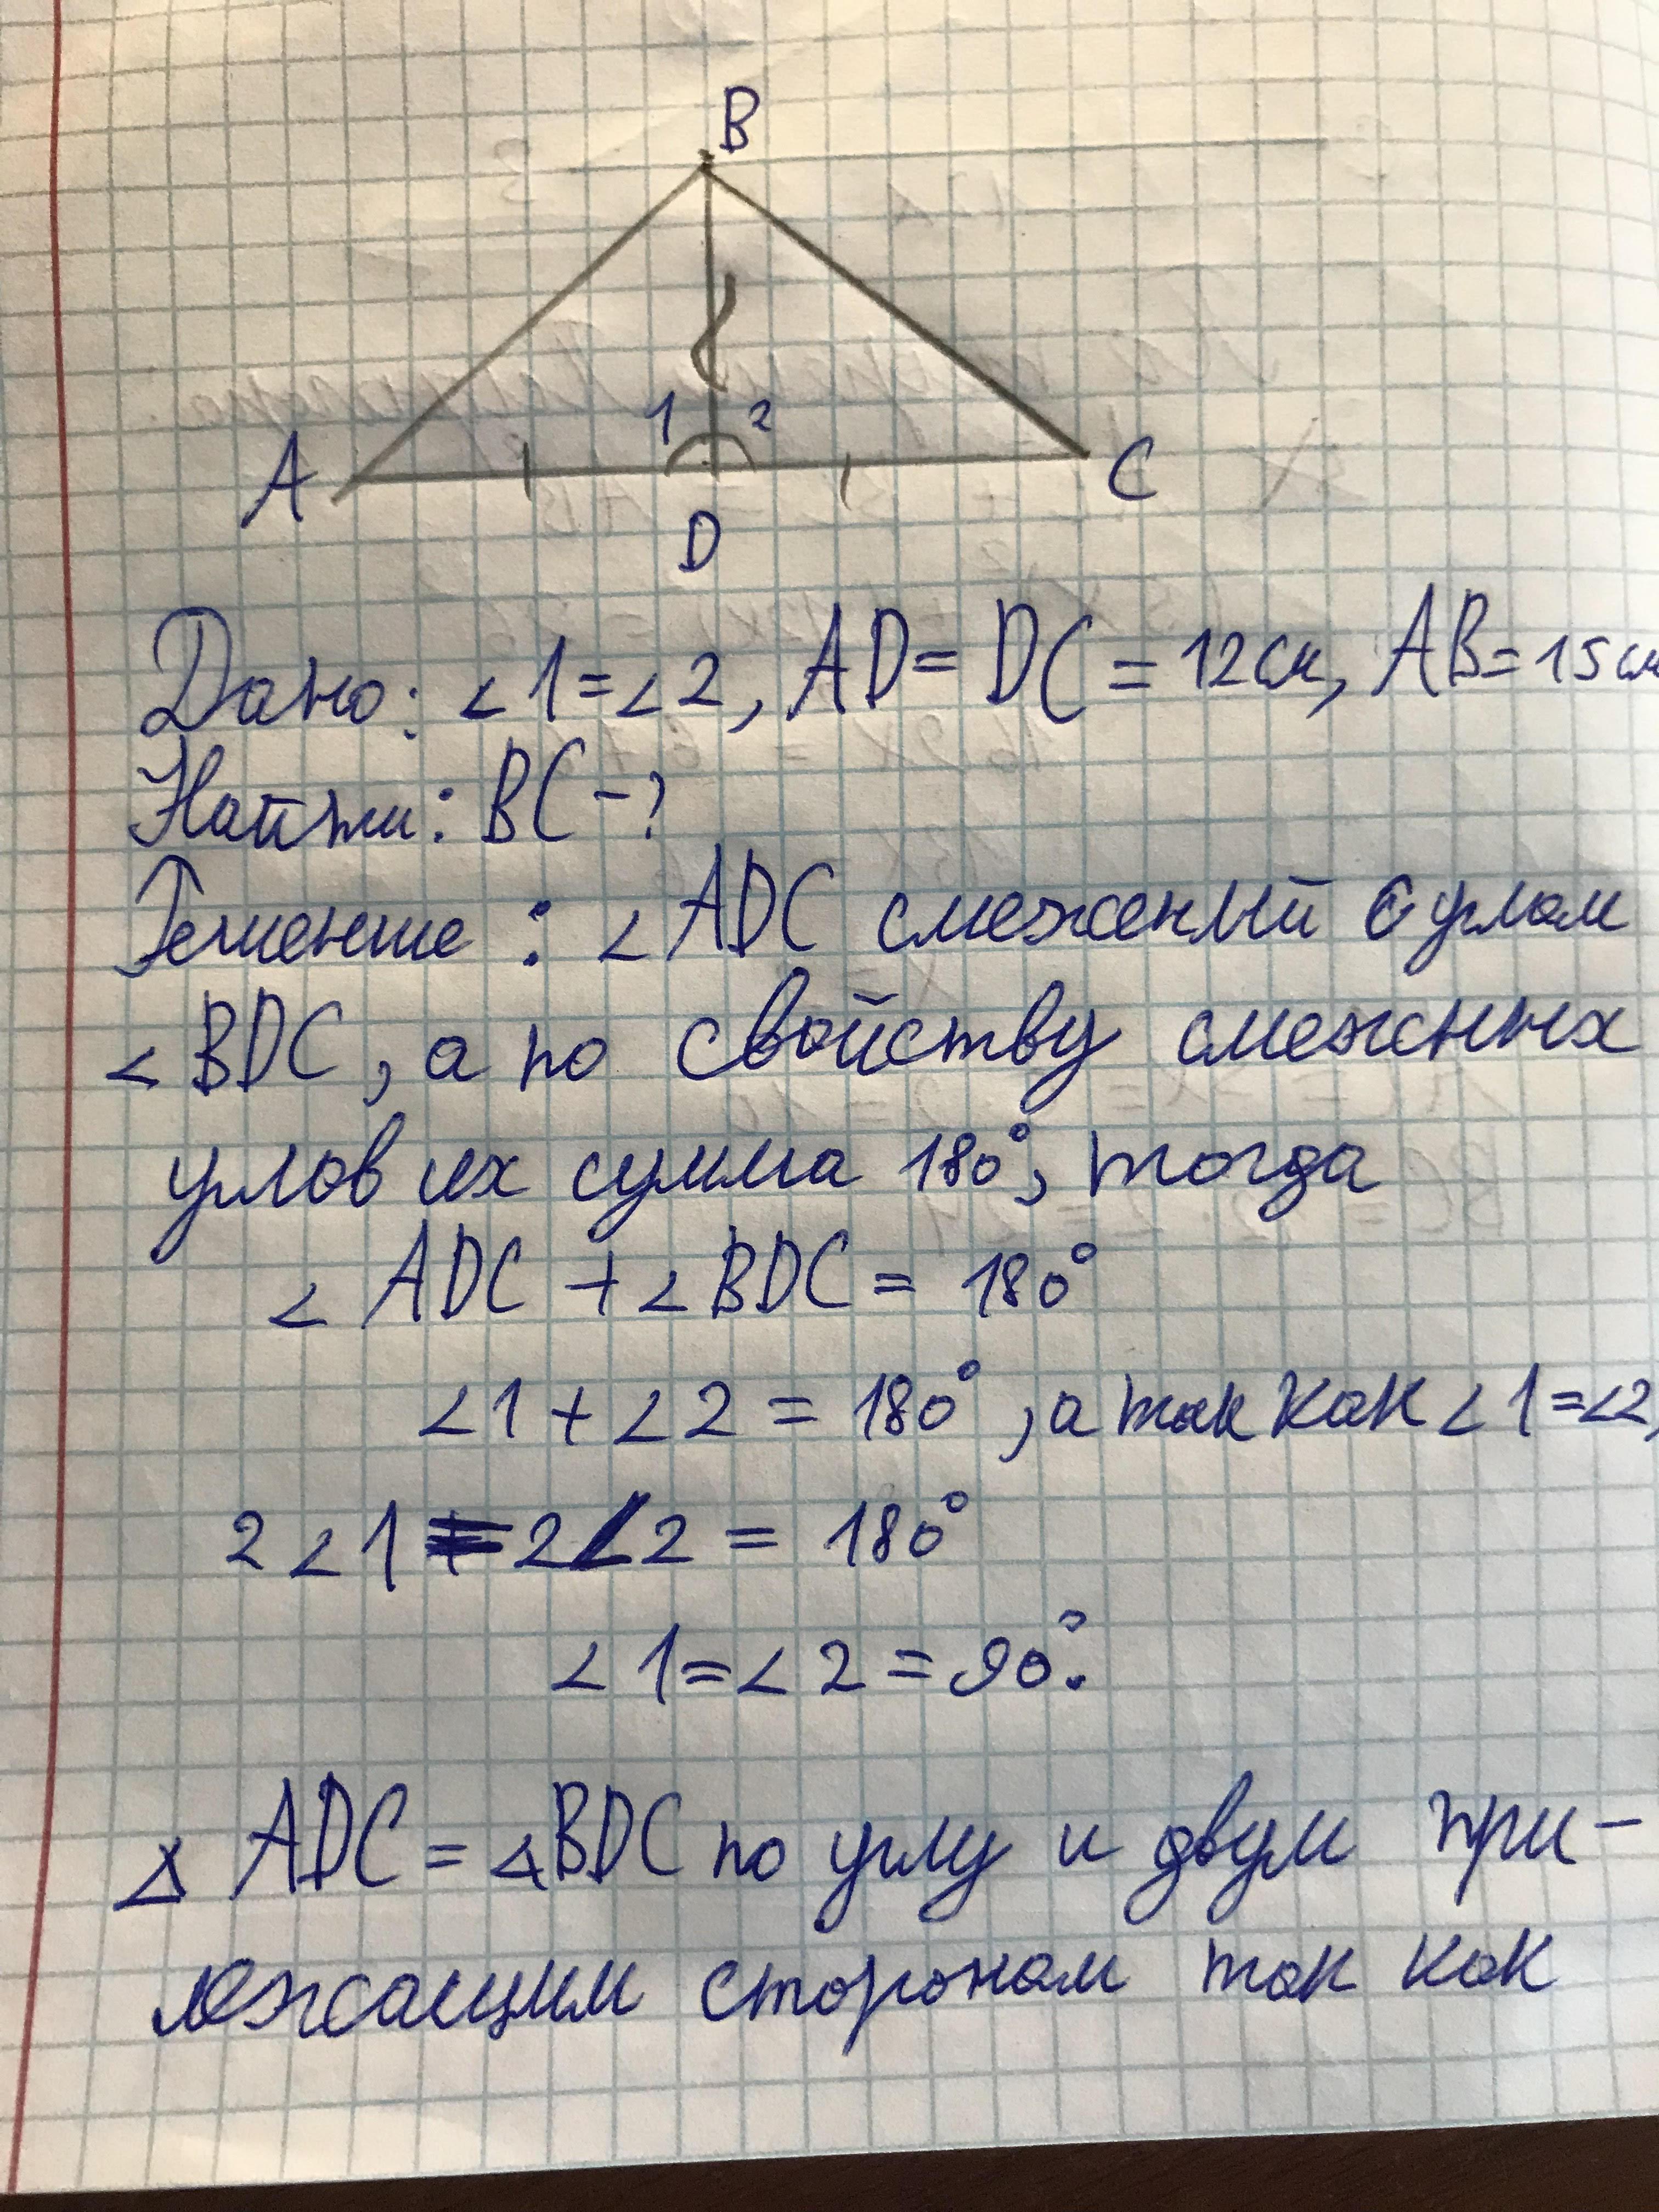 B
1 2
A C
D
Дано: ∠1=∠2, AD=DC=12см, AB=15см
Найти: BC-?
Решение: ∠ADC смеженый с углом
∠BDC, а по свойству смежных
углов их сумма 180°, тогда
∠ADC+∠BDC=180°
∠1+∠2=180°, а так как ∠1=∠2,
2∠1=2∠2=180°
∠1=∠2=90°.
△ADC=△BDC по углу и двум при-
лежащим сторонам так как